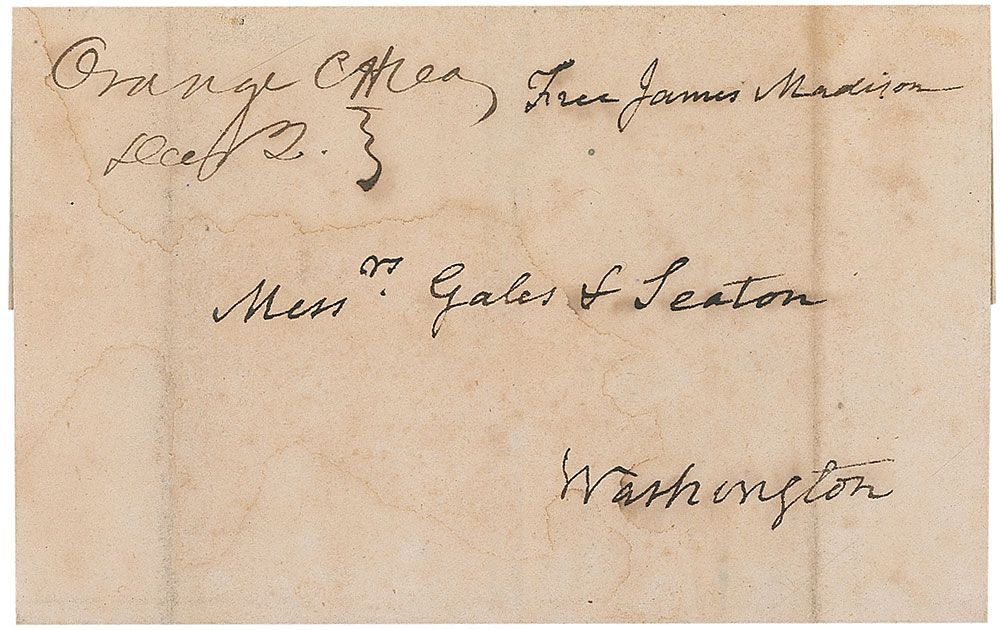 Orange CH Va
Dec 2.
Free James Madison
Messrs. Gales & Seaton
Washington